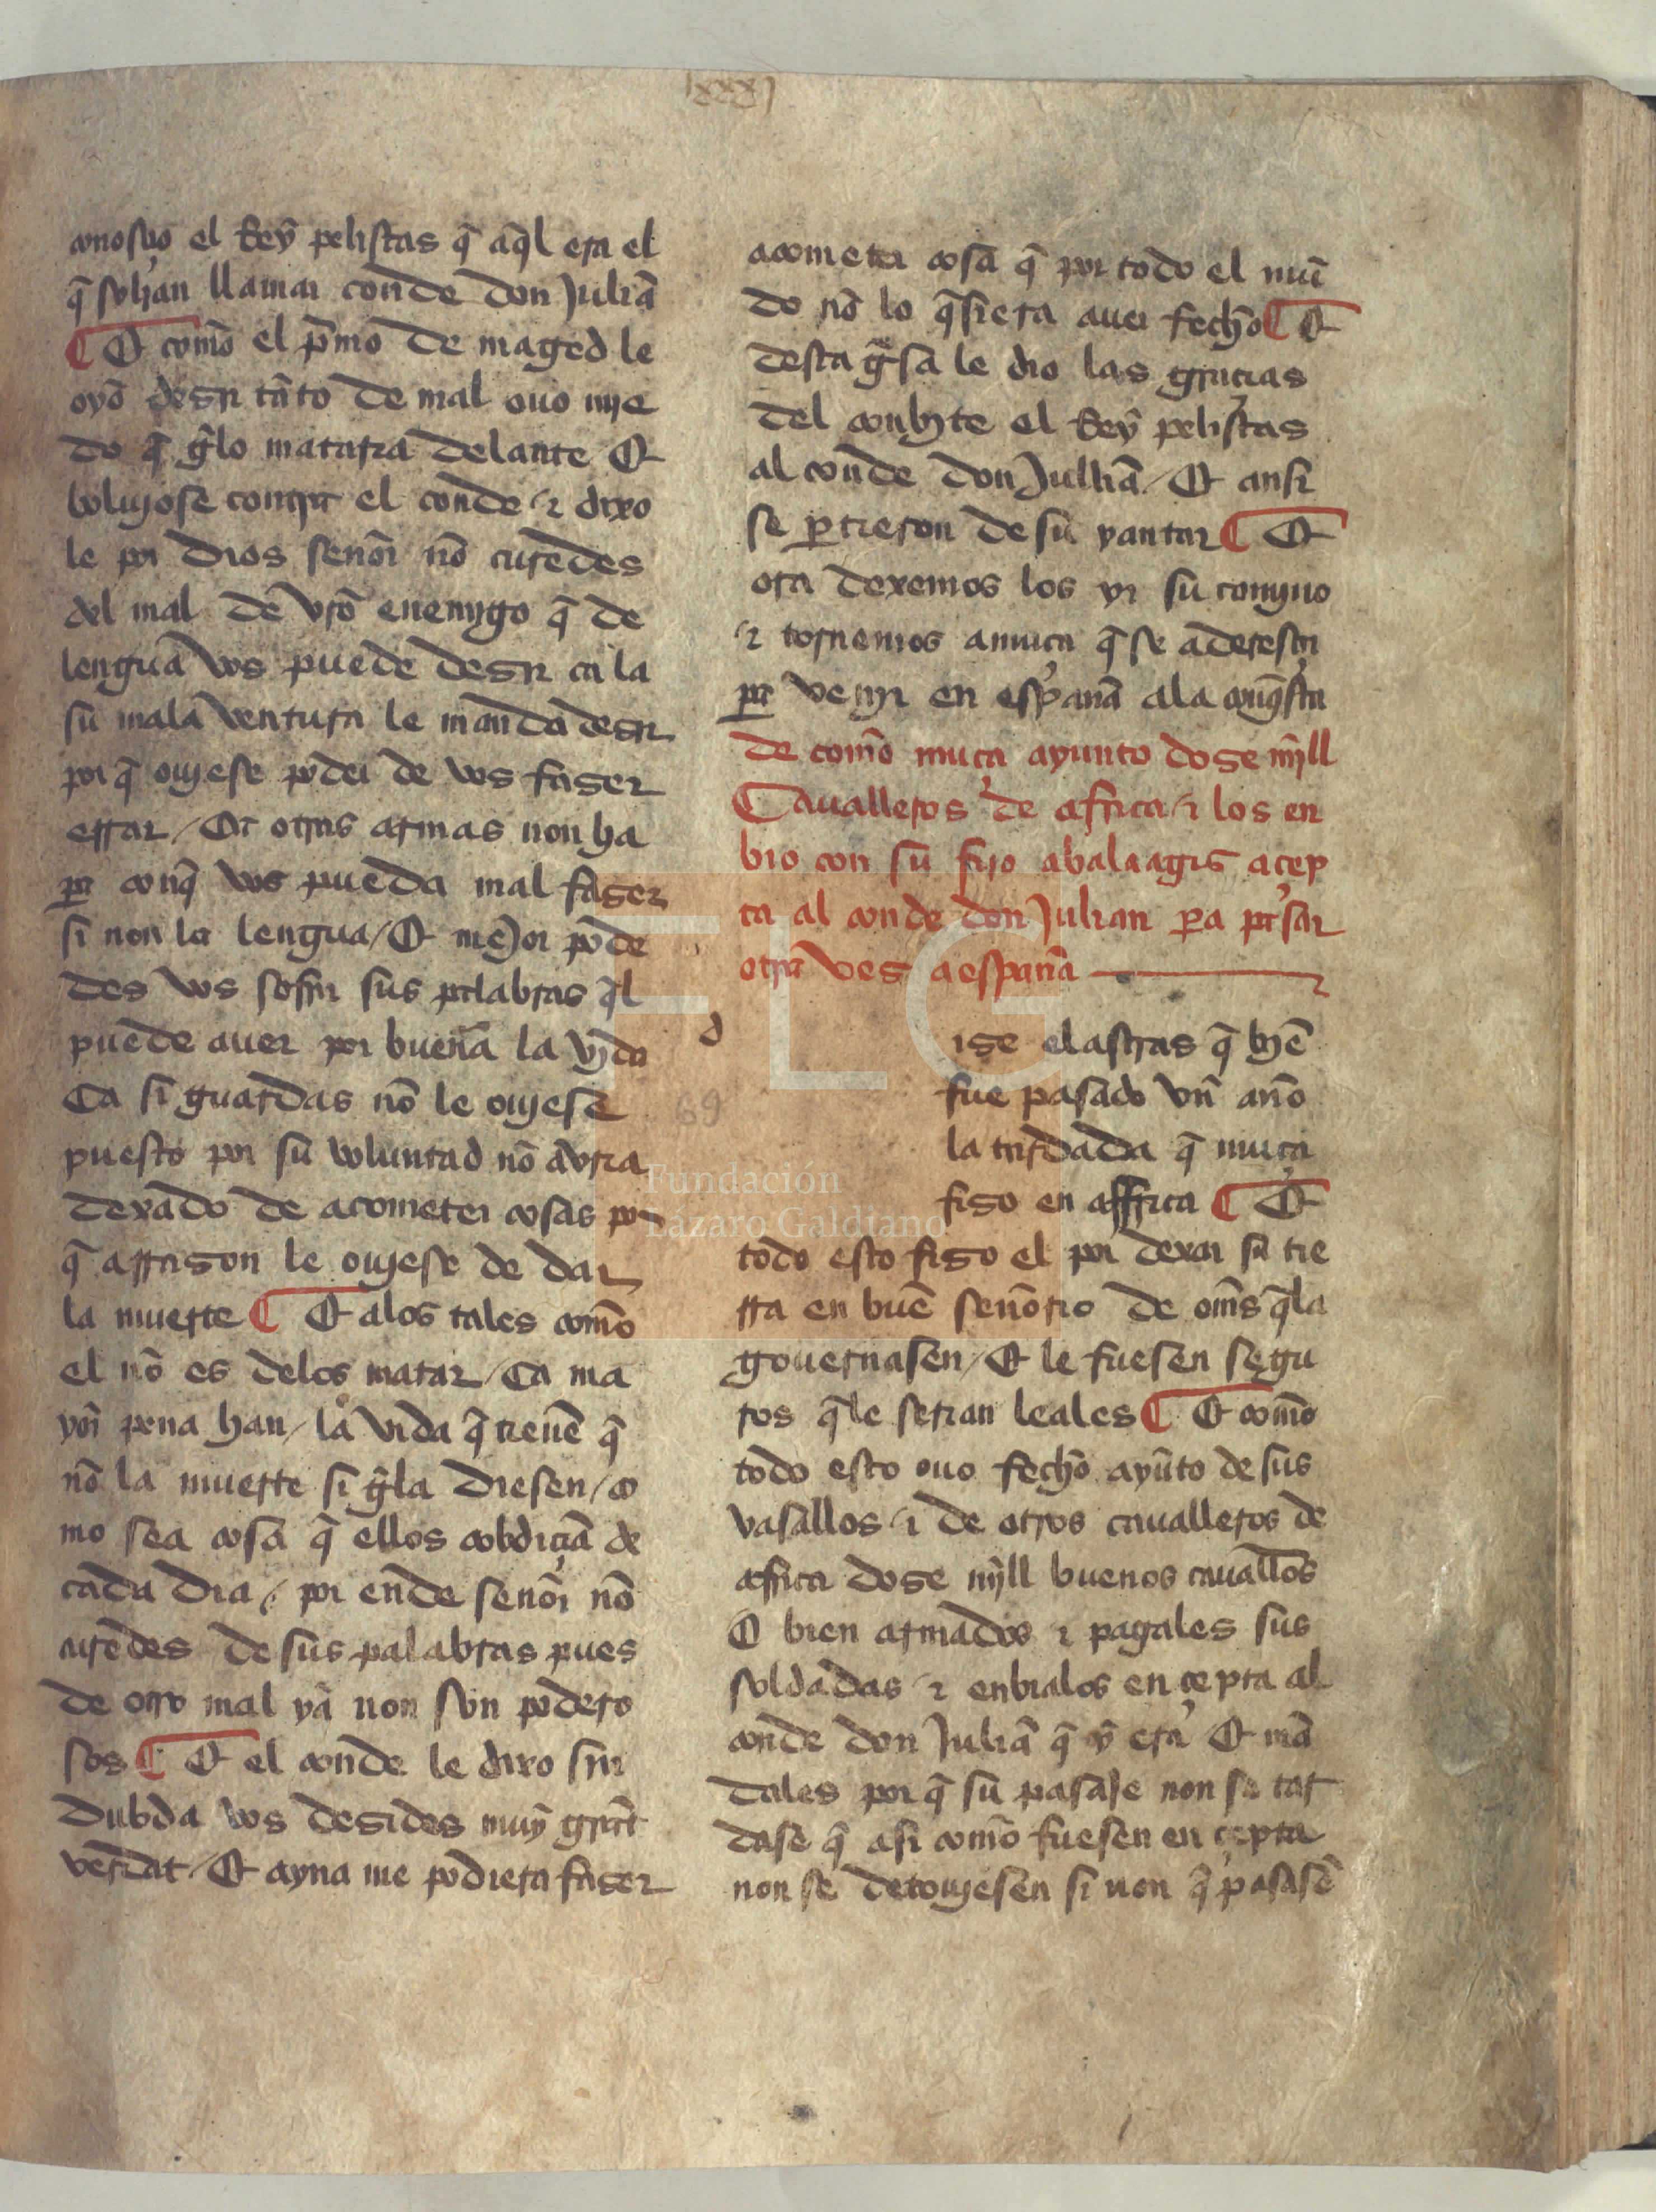 lxxxj
conosçio el Rey pelistas q̃ aq̃l era el
q̃ solian llamar conde don Juliã
¶ Et como el p̃mo de maged le
oyo desir tãto de mal ouo mye
do q̃ g̃lo mataria delante Et
boluyose contra el conde / τ dixo
le por dios señor nõ curedes
del mal de vr̃o enemygo q̃ de
lengua vos puede desir ca la
su mala ventura le manda desir
por q̃ ouyese poder de vos faser
errar / Ca otras armas non ha
pa conq̃ vos pueda mal faser
si non la lengua / Et mejor pode
des vos sofrir sus palabras q̃l
puede auer por buena la vyda
Ca si guardas nõ le ouyese
puesto por su voluntad nõ avria
dexado de acometer cosas por
q̃ arrason le ouyese de dar
la muerte ¶ Et alos tales como
el nõ es delos matar / Ca ma
yor pena han / la vida q̃ tienẽ q̃
nõ la muerte si g̃la diesen / co
mo sea cosa q̃ ellos cobdiçiã de
cada dia / por ende señor nõ
curedes de sus palabras pues
de otro mal ya non son podero
sos ¶ Et el conde le dixo sin
dubda vos desides muy grãt
verdat / Et ayna me podiera faser
acometer cosa q̃ por todo el mũ
do nõ lo q̃siera auer fecho ¶ Et
desta g̃sa le dio las graçias
del conbyte el Rey pelistas
al conde don Julliã / Et ansi
se ꝑtieron de su yantar ¶ Et
ora dexemos los yr su comyno
τ tornemos a muça q̃ se aderesça
pa venyr en españa ala conq̃sta
de como muça ayunto dose mỹll
Caualleros de affrica / τ los en
bio con su fijo abalaagis a çep
ta al conde don Julian ꝑa pasar
otra ves a españa
d
69
ise elastras q̃ biẽ
fue pasado vn año
la tardada q̃ muça
fiso en affrica ¶ Et
todo esto fiso el por dexar su tie
rra en buẽ señorio de om̃s q̃la
gouernasen / Et le fuesen segu
ros q̃ le serian leales ¶ Et como
todo esto ouo fecho ayũto de sus
vasallos / τ de otros caualleros de
affrica dose mỹll buenos cauallos
O bien armados τ pagales sus
soldadas / τ enbialos en çepta al
conde don Juliã q̃ y era Et mã
dales por q̃ su pasaje non se tar
dase q̃ asi como fuesen en çepta
non se detouyesen si non q̃ pasasẽ
FLG
Fundación
Lázaro Galdiano